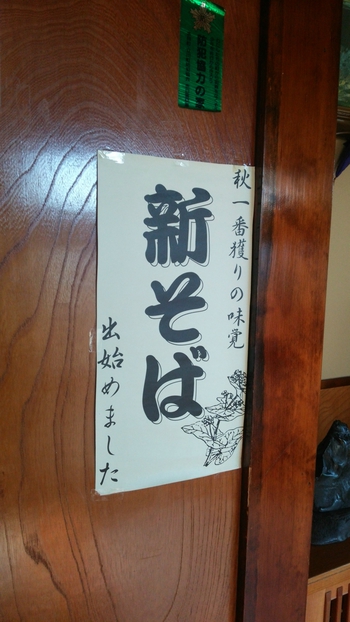 防犯協力の家
秋一番獲りの味覚
新そば
出始めました